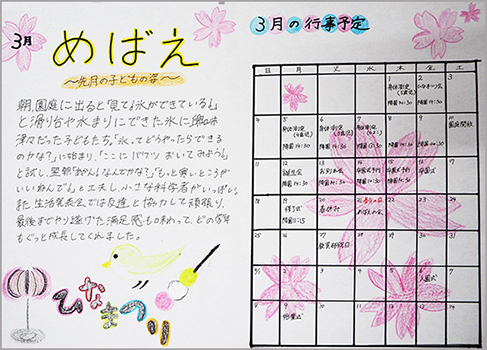 3月
めばえ
〜先月の子どもの姿〜
朝、園庭に出ると「見て!氷ができている!」
と滑り台や水まりにできた氷に興味
津々だった子どもたち。「氷ってどうやったらできる
のかな?」に始まり、「ここにバケツおいてみよう!」
と試し、翌朝「
なんでかな?」「もっと寒いところが
いいねんで!」と工夫し、小さな科学者がいっぱい。
また生活発表会では友達と協力して頑張り、
最後までやり遂げた満足感も味わって、どの学年
もぐっと成長してくれました。
ひなまつり
3月の行事予定
日 月 火 水 木 金 土
1 2 3
身体測定
降園14:30
ひなまつり会
降園14:30
4 5 6 7 8 9 10
身体測定
降園14:30
降園14:30
降園14:30
降園14:30
園庭開放
11 12 13 14 15 16 17
誕生会
お別れ会
降園14:30
18 19 20 21 22 23 24
修了式
降園11:15
春休み
春分の日
25 26 27 28 29 30 31
4/1 2 3 4 5 6 7
入園式
8 9 10 11 12 13 14
始業式